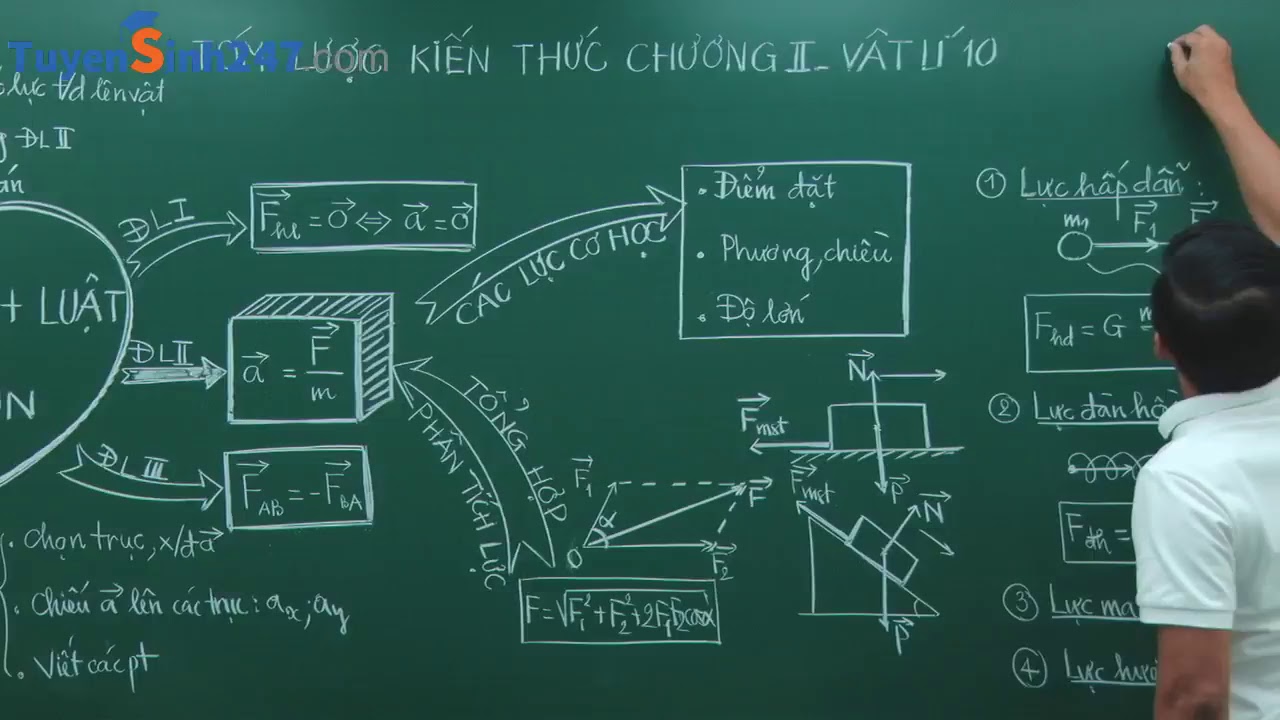 TuyenSinh247.com
TÓM LƯỢC KIẾN THỨC CHƯƠNG II - VẬT LÍ 10
lực t/d lên vật
ĐL II
ĐL I
F⃗hl = 0⃗ ⇔ a⃗ = 0⃗
+ LUẬT
ĐL II
a⃗ = F⃗/m
ĐL III
F⃗AB = -F⃗BA
• chọn trục, x/đ a⃗
• Chiếu a⃗ lên các trục: ax; ay
• Viết các pt
CÁC LỰC CƠ HỌC
• Điểm đặt
• Phương, chiều
• Độ lớn
TỔNG HỢP
PHÂN TÍCH LỰC
F⃗1
α
O
F⃗
F⃗2
F = √F1² + F2² + 2F1F2cosα
N⃗
F⃗mst
P⃗
F⃗mst
N⃗
P⃗
① Lực hấp dẫn:
m1
F⃗1
Fhd = G
② Lực đàn hồi
Fđh =
③ Lực ma
④ Lực